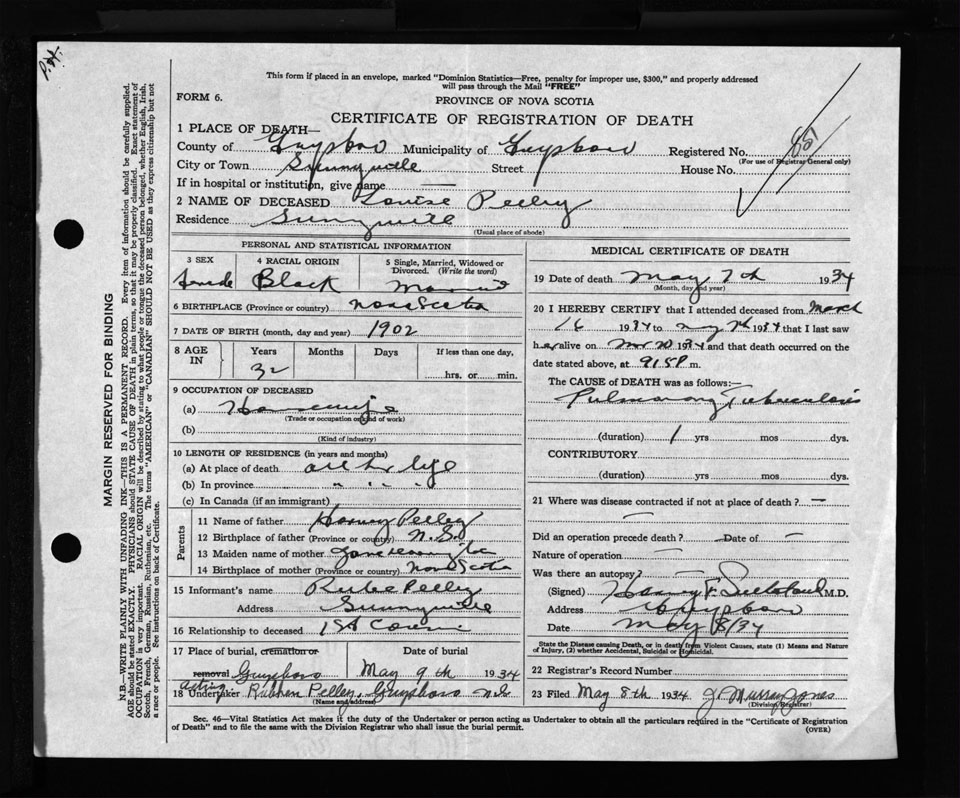 P.H.
This form if placed in an envelope, marked "Dominion Statistics—Free, penalty for improper use, $300," and properly addressed
will pass through the Mail "FREE"
FORM 6.
PROVINCE OF NOVA SCOTIA
CERTIFICATE OF REGISTRATION OF DEATH
1 PLACE OF DEATH—
County of Guysboro Municipality of Guysboro Registered No.
(For use of Registrar General only)
City or Town Sunnyville Street House No.
If in hospital or institution, give name —
2 NAME OF DECEASED Louise Pelley
Residence Sunnyville
(Usual place of abode)
PERSONAL AND STATISTICAL INFORMATION
3 SEX 4 RACIAL ORIGIN 5 Single, Married, Widowed or
Divorced. (Write the word)
Female Black Married
6 BIRTHPLACE (Province or country) Nova Scotia
7 DATE OF BIRTH (month, day and year) 1902
8 AGE IN Years Months Days If less than one day,
32 hrs. or min.
9 OCCUPATION OF DECEASED
(a) Housewife
(Trade or occupation or kind of work)
(b)
(Kind of industry)
10 LENGTH OF RESIDENCE (in years and months)
(a) At place of death all her life
(b) In province " " " "
(c) In Canada (if an immigrant)
Parents
11 Name of father Harvey Pelley
12 Birthplace of father (Province or country) N.S.
13 Maiden name of mother Jane
14 Birthplace of mother (Province or country) Nova Scotia
15 Informant's name Pelley
Address Sunnyville
16 Relationship to deceased 1st Cousin
17 Place of burial, cremation or Date of burial
removal Guysboro May 9th 1934
acting
18 Undertaker Rubhen Pelley. Guysboro N.S.
(Name and address)
MEDICAL CERTIFICATE OF DEATH
19 Date of death May 7th 1934
(Month, day and year)
20 I HEREBY CERTIFY that I attended deceased from March
16 1934 to May 7th 1934 that I last saw
her alive on 1934 and that death occurred on the
date stated above, at 9:15 P m.
The CAUSE of DEATH was as follows:—
Pulmonary Tuberculosis
(duration) 1 yrs mos dys.
CONTRIBUTORY
(duration) yrs mos dys.
21 Where was disease contracted if not at place of death? —
—
Did an operation precede death? Date of —
Nature of operation —
Was there an autopsy? —
(Signed) Harvey F. M.D.
Address Guysboro
Date May 8/34
State the Disease causing Death, or in death from Violent Causes, state (1) Means and Nature
of Injury, (2) whether Accidental, Suicidal or Homicidal.
22 Registrar's Record Number
23 Filed May 8th 1934 J. Murray Jones
(Division Registrar)
Sec. 46—Vital Statistics Act makes it the duty of the Undertaker or person acting as Undertaker to obtain all the particulars required in the "Certificate of Registration
of Death" and to file the same with the Division Registrar who shall issue the burial permit.
(OVER)
MARGIN RESERVED FOR BINDING
N.B.—WRITE PLAINLY WITH UNFADING INK—THIS IS A PERMANENT RECORD. Every item of information should be carefully supplied.
AGE should be stated EXACTLY. PHYSICIANS should STATE CAUSE OF DEATH in plain terms, so that it may be properly classified. Exact statement of
OCCUPATION is very important. RACIAL ORIGIN will be described by stating to what people or tongue the deceased person belonged, whether English, Irish,
Scotch, French, German, Russian, Ruthenian, etc. The terms "AMERICAN" or "CANADIAN" SHOULD NOT BE USED as they express citizenship but not
a race or people. See instructions on back of Certificate.